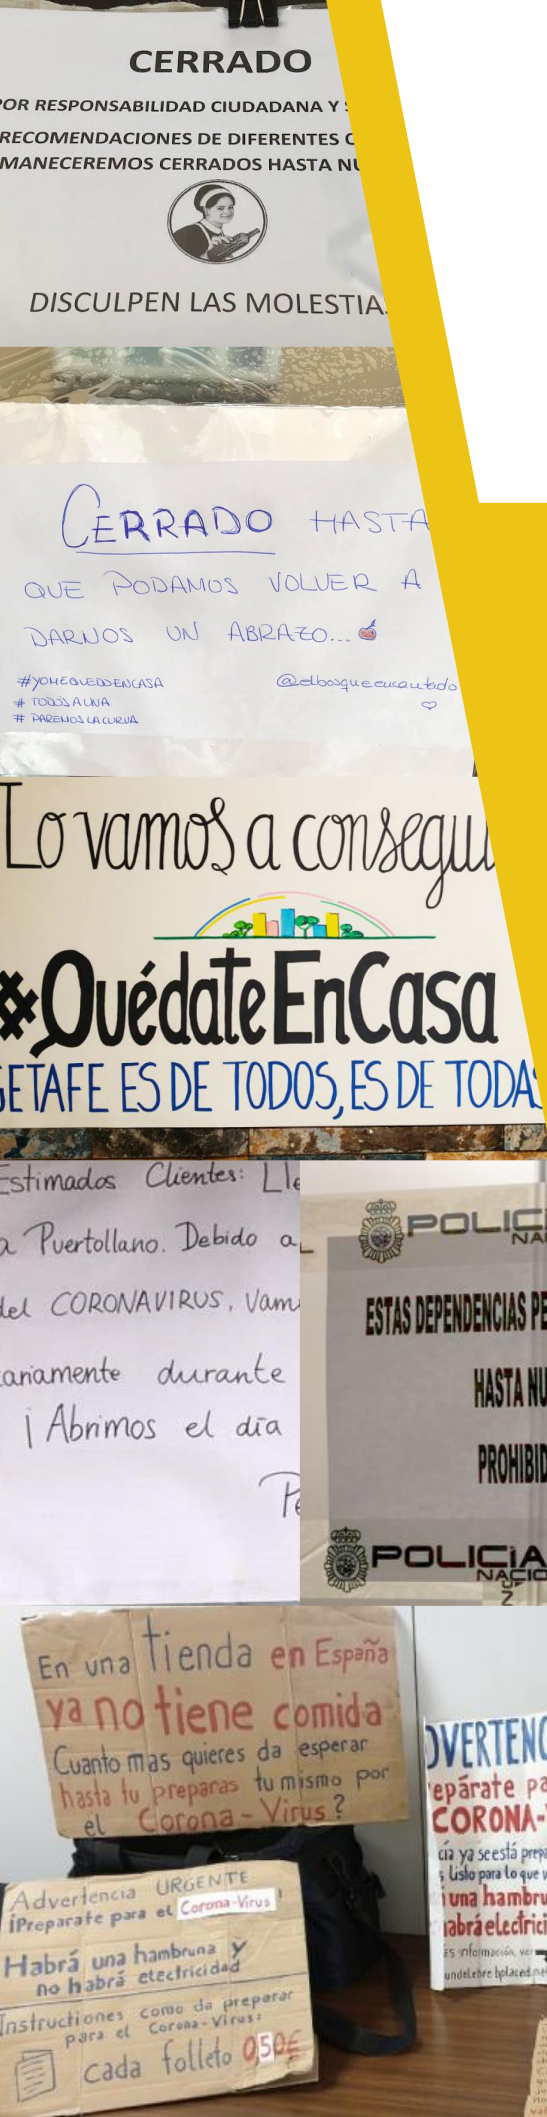 CERRADO
POR RESPONSABILIDAD CIUDADANA Y
RECOMENDACIONES DE DIFERENTES
MANECEREMOS CERRADOS HASTA NU
DISCULPEN LAS MOLESTIAS
CERRADO HASTA
QUE PODAMOS VOLVER A
DARNOS UN ABRAZO...
#YOMEQUEDOENCASA
@elbosqueencantado
# TODOS A UNA
# PAREMOS LA CURVA
Lo vamos a consegui
#QuédateEnCasa
GETAFE ES DE TODOS, ES DE TODA
Estimados Clientes: Lle
a Puertollano. Debido a
del CORONAVIRUS, Vam
ariamente durante
¡Abrimos el día
Pe
POLIC
NA
ESTAS DEPENDENCIAS PE
HASTA NU
PROHIBID
POLICIA
NACIO
En una tienda en España
ya no tiene comida
Cuanto mas quieres da esperar
hasta tu preparas tu mismo por
el Corona-Virus?
Advertencia URGENTE
¡Preparate para el Corona-Virus!
Habrá una hambruna y
no habrá electricidad
Instructiones como da preparar
para el Corona-Virus:
cada folleto 0,50€
DVERTENC
epárate pa
CORONA-
cia ya se está prepa
Listo para lo que v
una hambru
abrá electrici